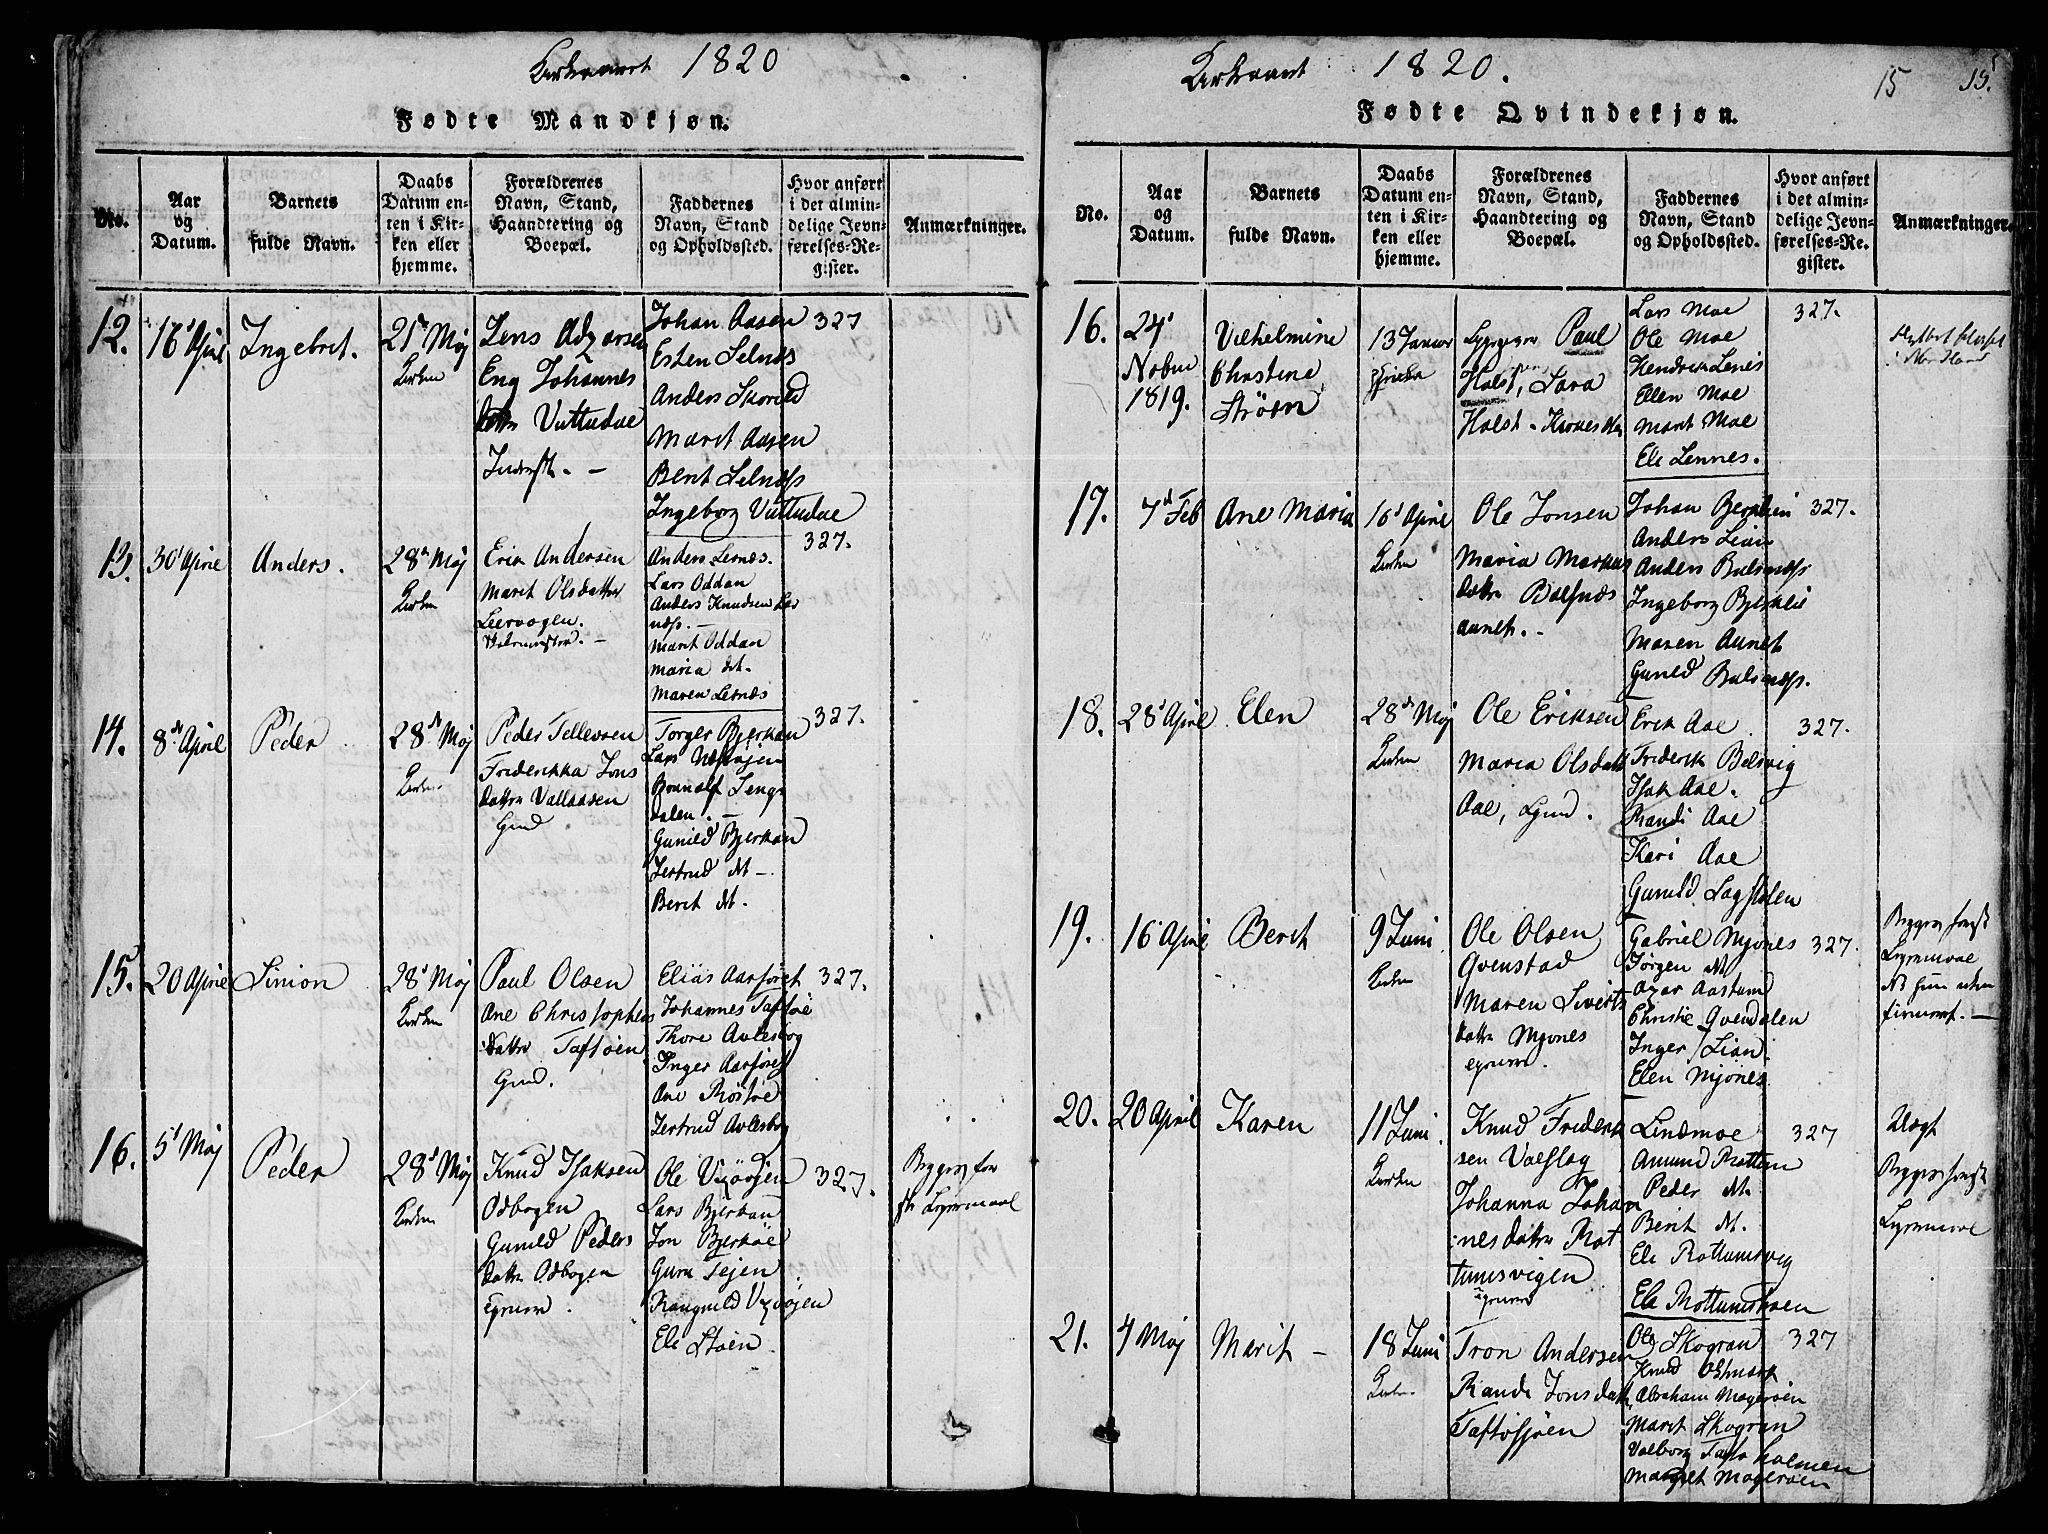 Kirkeaaret 1820
Fødte Mandkjøn.
No.
Aar
og
Datum.
Barnets
fulde Navn.
Daabs
Datum en-
ten i Kir-
ken eller
hjemme.
Forældrenes
Navn, Stand,
Haandtering og
Boepæl.
Faddernes
Navn, Stand
og Opholdssted.
Hvor anført
i det almin-
delige Jevn-
førelses-Re-
gister.
Anmærkninger.
12.
16 April
Ingebret.
21 Maj
Kirken
Jens
Eng Johannes
datter Vuttudae
Johan Aasen
Esten Selnæs
Anders Skorild
Maret Aasen
Berit Selnæs
Ingeborg Vuttudae
327
13.
30 April
Anders.
28 Maj
Kirken
Erik Andersen
Maret Olsdatter
Leervogen.
Anders Lernæs.
Lars Oddan
Anders Knudsen Ler
næs. —
Marit Oddan
Maria dt.
Maren Lernæs
327.
14.
8de April
Peder
28de Maj
Kirken
Peder Tellevsen
Friderikka Jons
datter Vallaasen
Gmd
Torger Bjerkan
Lars
dalen. —
Gunild Bjerkan
Jertrud dt —
Berit dt.
327.
15.
20 April
Simon
28 Maj
Kirken
Paul Olsen
Ane Christophers
datter Taftøen
Gmd.
Elias Aarsøret
Johannes Taftøe
Thore Avlesbog
Inger Aarsøret
Ane Røstøe
Jertrud Avlesbog
327.
16.
5 Maj
Peder
28 Maj
Kirken
Knud Isaksen
Odbogen
Gunild Peders
datter Odbogen
Ole Vixøjen
Lars Bjerkan
Jon Bjerkøe
Guru Tejen
Rangnild Vixøjen
Ele Støen
327.
Kirkeaaret 1820.
15 15.
Fødte Qvindekjøn.
No.
Aar
og
Datum.
Barnets
fulde Navn.
Daabs
Datum en-
ten i Kir-
ken eller
hjemme.
Forældrenes
Navn, Stand,
Haandtering og
Boepæl.
Faddernes
Navn, Stand
og Opholdssted.
Hvor anført
i det almin-
delige Jevn-
førelses-Re-
gister.
Anmærkninger.
16.
24
Nobm
1819.
Vilhelmine
Christine
Strøm
13 Januar
Paul
Holst, Sara
Holst
Lars Moe
Ole Moe
Hendrik Lenes
Ellen Moe
Marit Moe
Ele Lennes.
327.
17.
7 Feb
Ane Maria
16 April
Kirken
Ole Jonsen
Maria Markus
datter Balsnæs
aunet. —
Johan Bjerklien
Anders Lian
Anders Balsnæs
Ingeborg Bjerklie
Maren Aunet
Gunild Balsnæs.
327.
18.
28 April
Elen
28de Maj
Kirken
Ole Eriksen
Maria Olsdatt
Aae, Gmd.
Erik Aae
Friderik Belsvig
Isak Aae.
Randi Aae
Kari Aae
Gunild Lagstølen
327.
19.
16 April
Berit
9 Juni
Kirken
Ole Olsen
Qvenstad
Maren Siverts
datter Mjones
Gabriel Mjones
Jørgen dt
Christie Qvendalen
Inger Lian
Elen Mjones
327.
20.
20 April
Karen
11 Juni
Kirken
Knud Friderik
sen Valslag
Johanna Johan
nesdatter Rot
tumsvigen
Lindmoe
Amund Rottem
Peder dt.
Berit dt.
Ele Rottumsvig
Ele Rottumskoen
327
21.
4 Maj
Marit —
18 Juni
Kirken
Tron Andersen
Rande Jonsdatt
Taftøsjøen
Ole Skogran
Knud Ostmark
Abraham Magerøen
Marit Skogran
Valborg Taftøholmen
Margret Magerøen
327